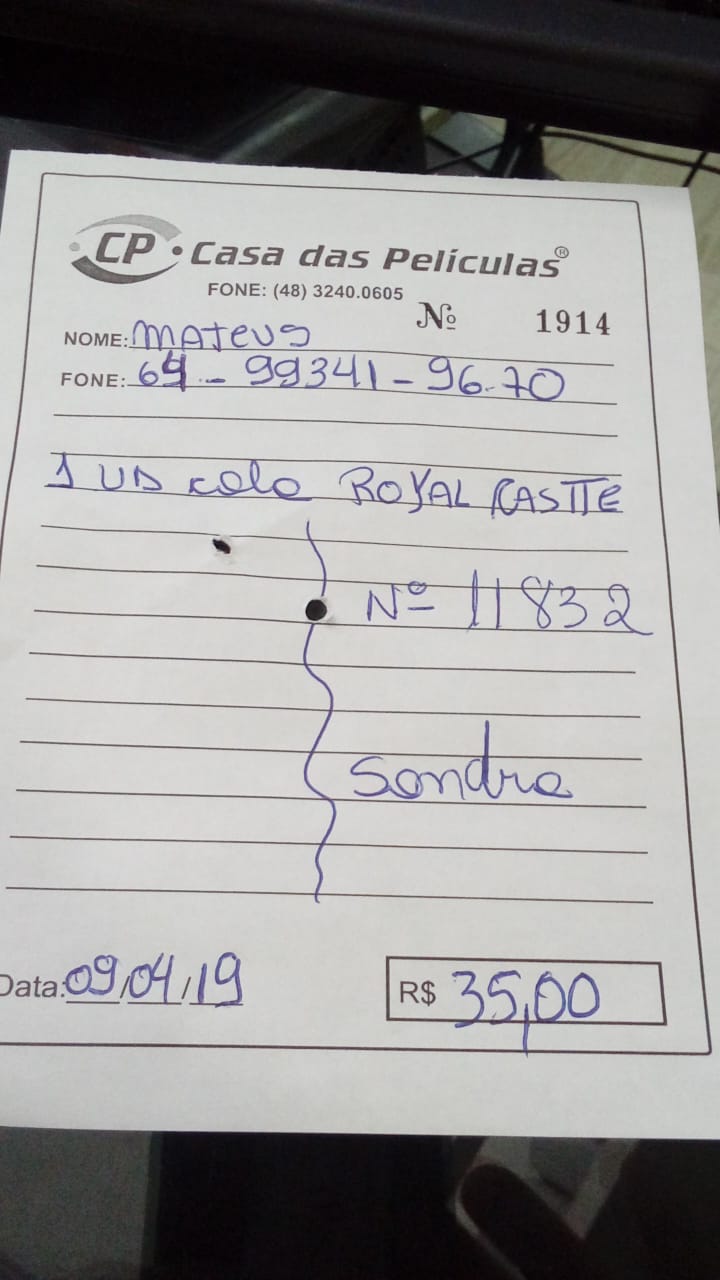 CP • Casa das Películas®
FONE: (48) 3240.0605
Nº 1914
NOME: Mateus
FONE: 64 - 99341 - 96.70
1 UD cola ROYAL CASTTE
Nº 11832
Sandra
Data: 09/04/19
R$ 35,00